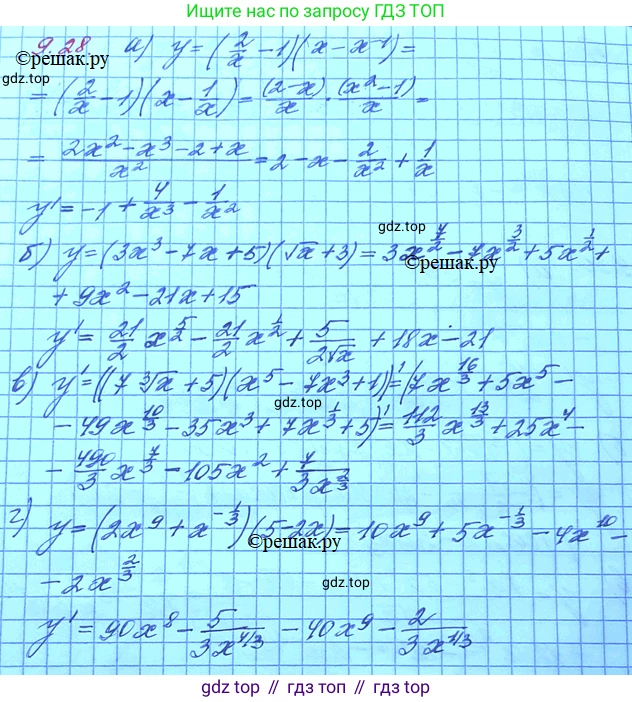 Ищите нас по запросу ГДЗ ТОП
9.28. а) y = (2/x - 1)(x - x⁻¹) =
©решак.ру
= (2/x - 1)(x - 1/x) = (2-x)/x · (x² - 1)/x =
= (2x² - x³ - 2 + x)/x² = 2 - x - 2/x² + 1/x
y' = -1 + 4/x³ - 1/x²
б) y = (3x³ - 7x + 5)(√x + 3) = 3x^(7/2) - 7x^(3/2) + 5x^(1/2) +
gdz.top
©решак.ру
+ 9x² - 21x + 15
y' = 21/2 x^(5/2) - 21/2 x^(1/2) + 5/(2√x) + 18x - 21
в) y' = ((7 ∛x + 5)(x⁵ - 7x³ + 1))' = (7x^(16/3) + 5x⁵ -
gdz.top
- 49x^(10/3) - 35x³ + 7x^(1/3) + 5)' = 112/3 x^(13/3) + 25x⁴ -
- 490/3 x^(7/3) - 105x² + 7/(3x^(2/3))
г) y = (2x⁹ + x^(-1/3))(5 - 2x) = 10x⁹ + 5x^(-1/3) - 4x¹⁰ -
©решак.ру
- 2x^(2/3)
gdz.top
y' = 90x⁸ - 5/(3x^(4/3)) - 40x⁹ - 2/(3x^(1/3))
©решак.ру
gdz top // гдз топ // gdz.top